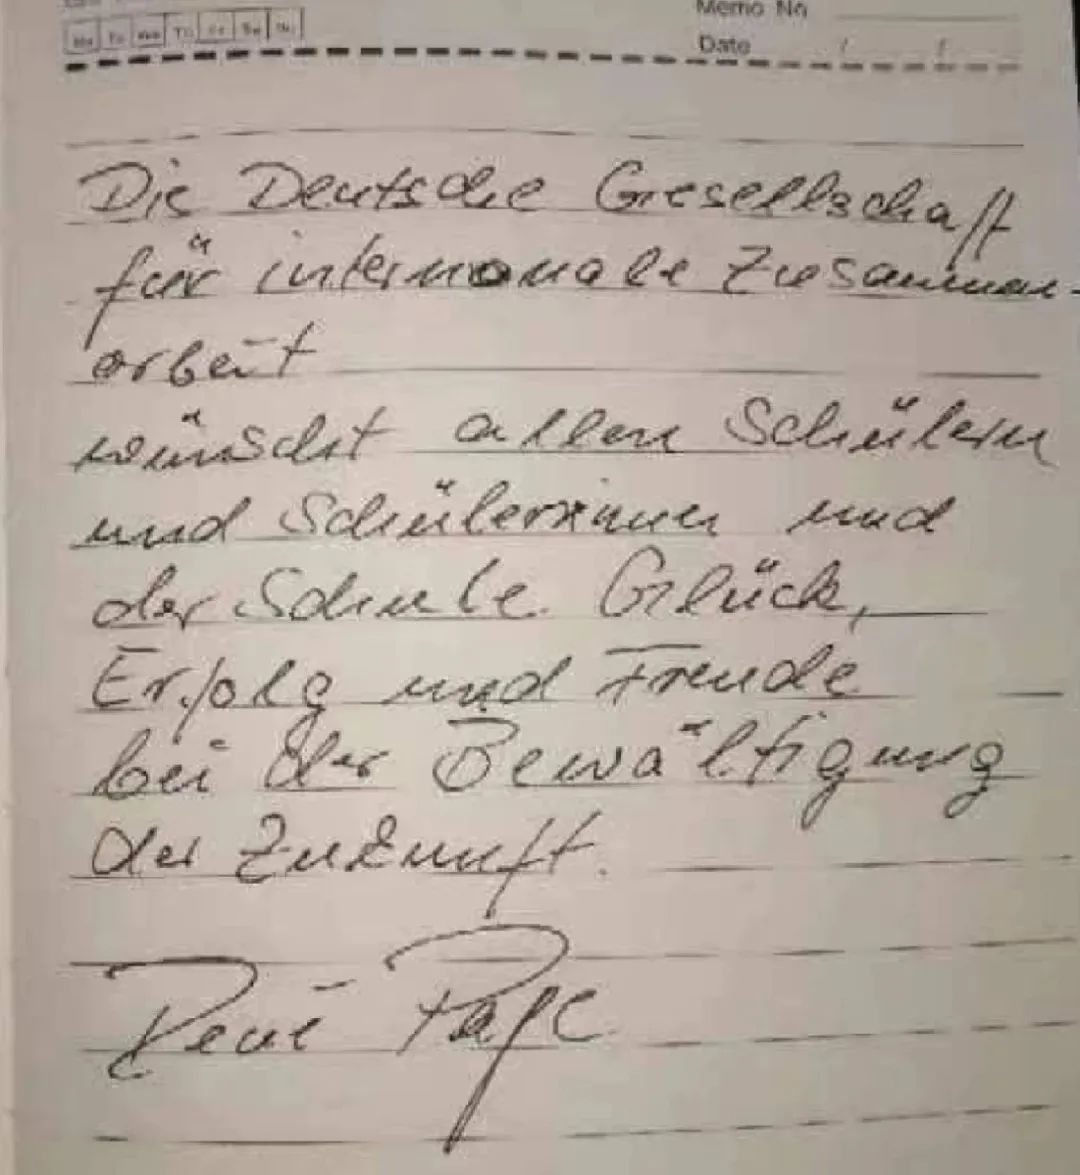 Memo No
Mo Tu Wed Th Fr Sa Su
Date / /
Die Deutsche Gesellschaft
für internationale Zusammen-
arbeit
wünscht allen Schülern
und Schülerinnen und
der Schule Glück,
Erfolg und Freude
bei der Bewältigung
der Zukunft.
René Pape